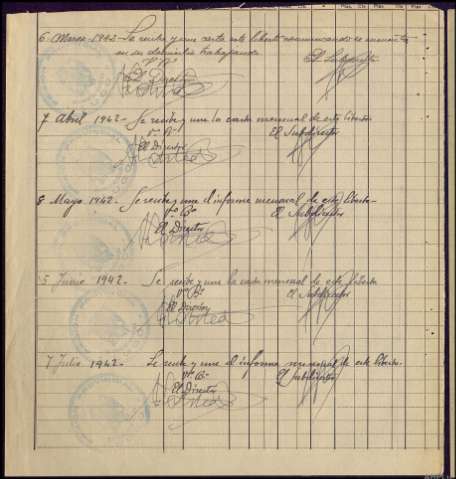 6 Marzo 1942 Se recibe y une carta este liberto comunicando se encuentra
en su domicilio trabajando
Vº Bº
El Director El Subdirector
7 Abril 1942.- Se recibe y une la carta mensual de este liberto.
Vº Bº El Subdirector
El Director
8 Mayo 1942.- Se recibe y une el informe mensual de este liberto.-
Vº Bº El Subdirector
El Director
5 Junio 1942.- Se recibe y une la carta mensual de este liberto
Vº Bº El Subdirector
El Director
7 Julio 1942.- Se recibe y une el informe mensual de este liberto.-
Vº Bº El Subdirector
El Director